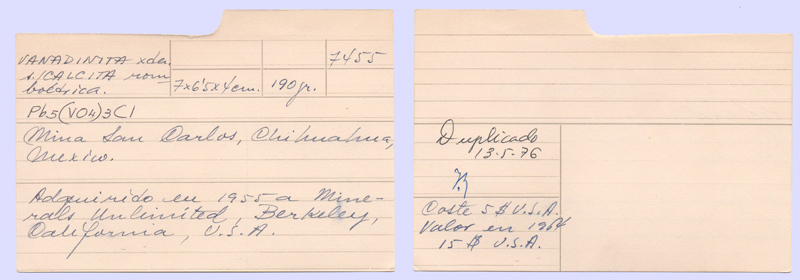 VANADINITA xda.
s/CALCITA rom-
boédrica.
7x6'5x4cm.
190gr.
7455
Pb5(VO4)3Cl
Mina San Carlos, Chihuahua,
Mexico.
Adquirido en 1955 a Mine-
rals Unlimited, Berkeley,
California, U.S.A.
Duplicado
13-5-76
Coste 5 $ U.S.A.
Valor en 1964
15 $ U.S.A.